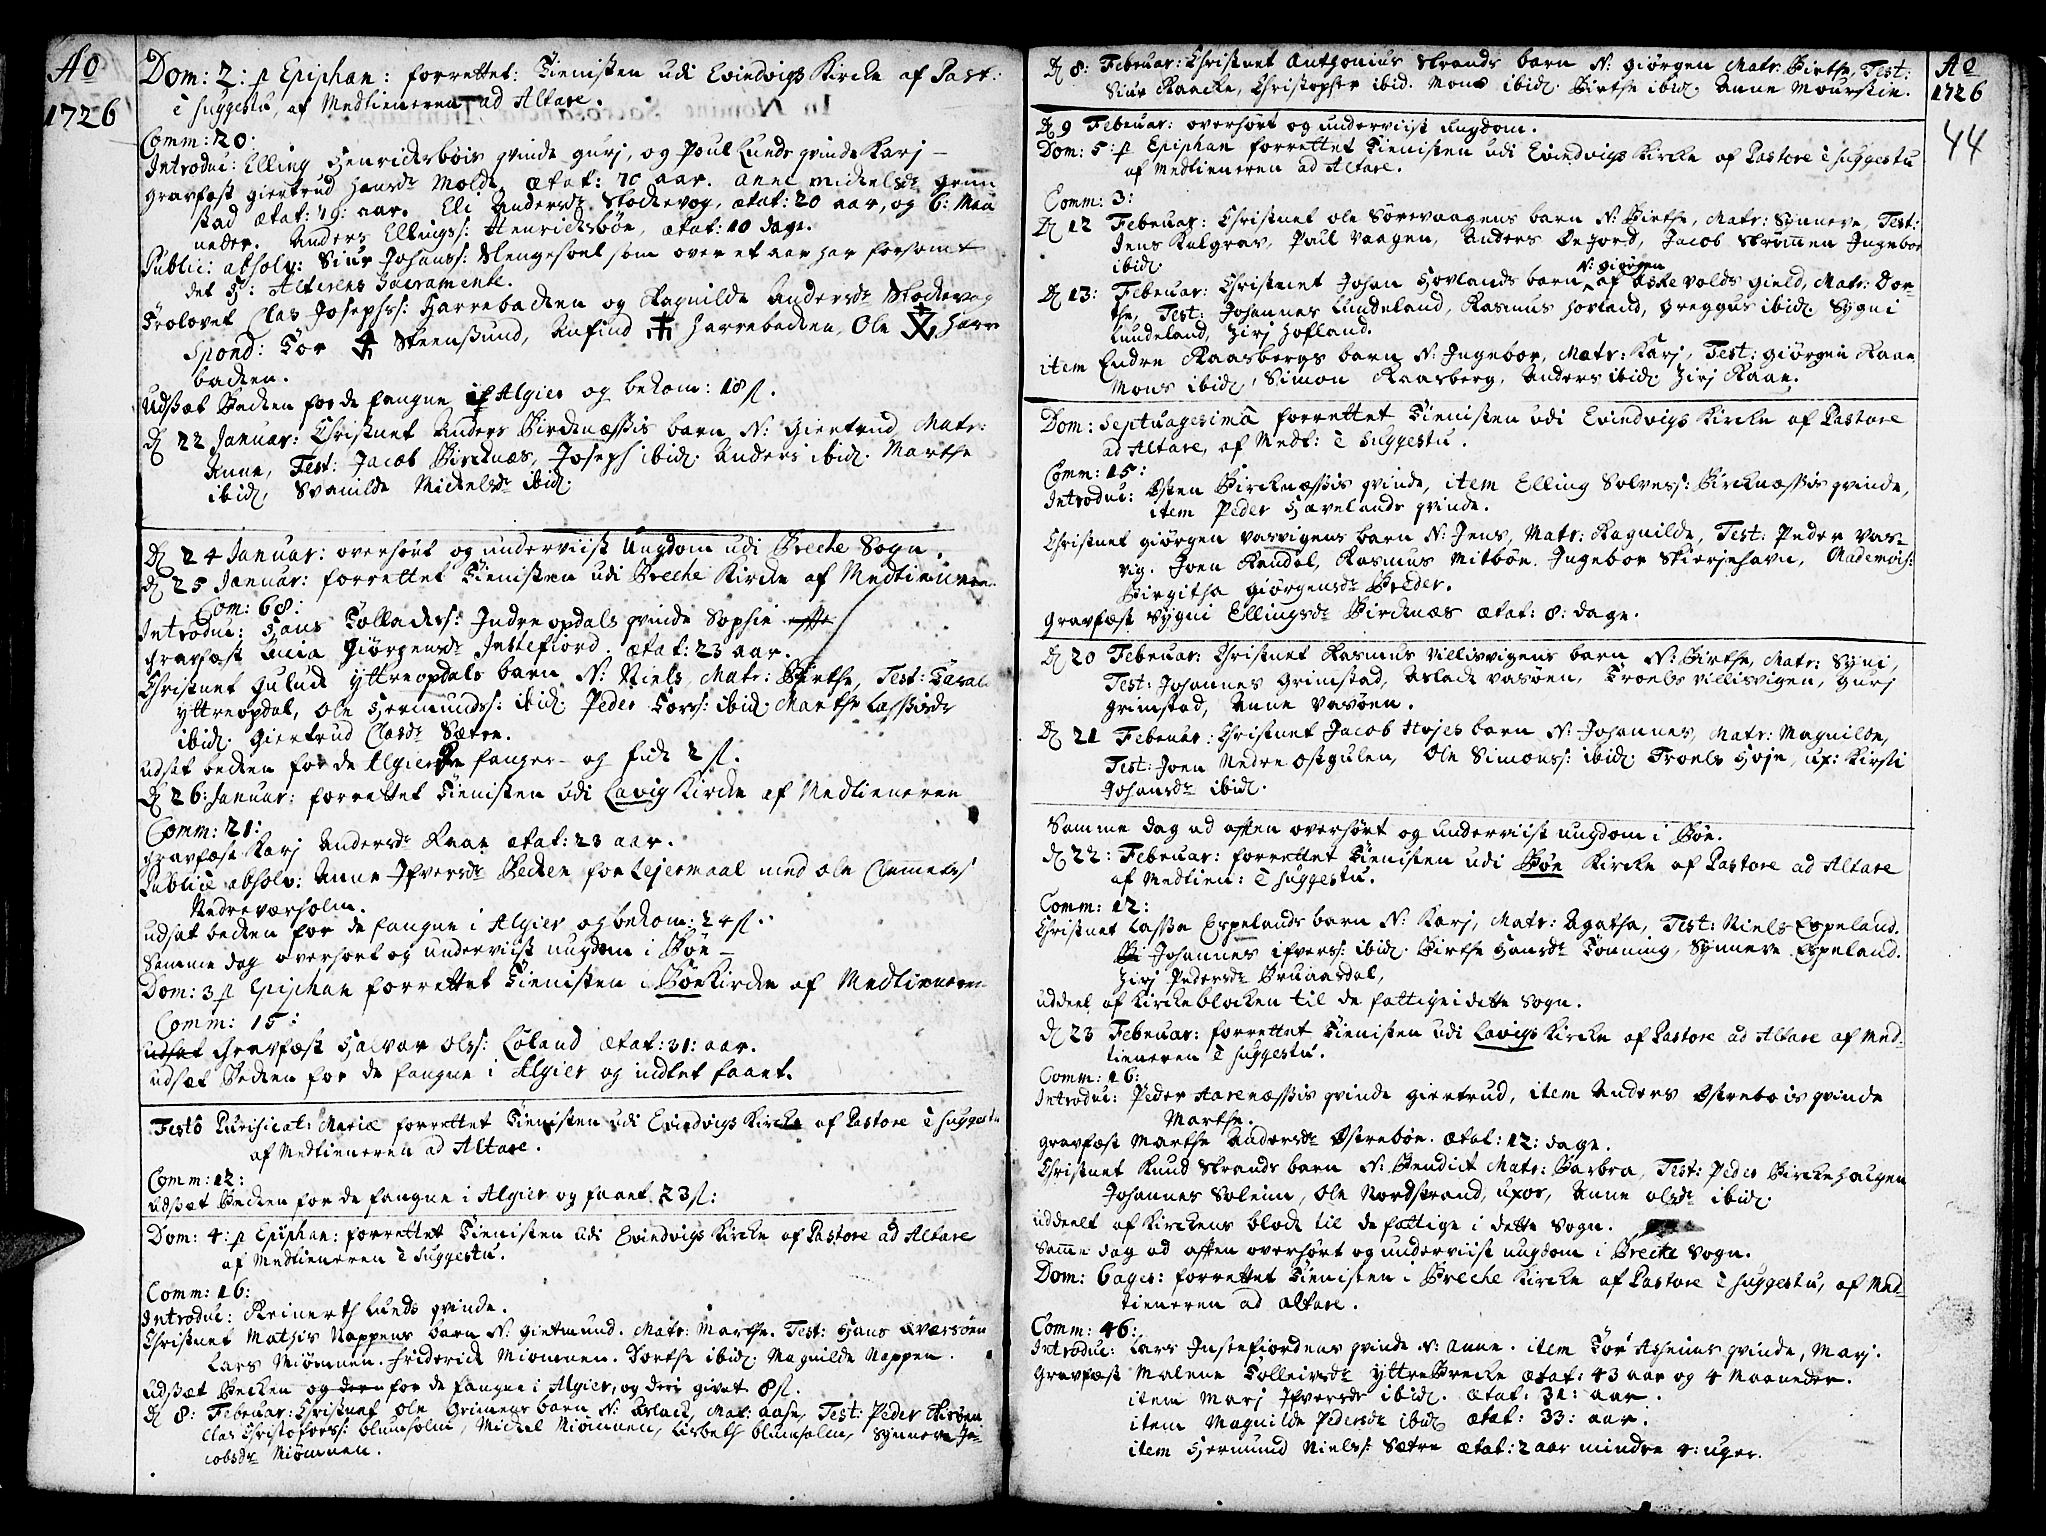 Ao
1726
Dom: 2: p Epiphan: forrettet: Tienisten udi Evindvigs Kircke af Past:
è suggestu, af Medtieneren ad Altare.
Comm: 20:
Introduc: Elling Henricksbøis qvinde gurj, og Poul Lunds qvinde Karj –
Gravfæst giertrud Hansdr Molde, ætat: 70 aar. Anne Mickelsdr Grim
stad ætat: 19: aar. Eli Andersdr Stockevog, ætat: 20 aar, og 6: Maa
neder. Anders Ellingss: Henricksbøe, ætat: 10 dage.
Public: absolv: Siur Johanss: Slengesoel som over et aar har forsømt
det H: Alterens Sacramente.
Trolovet Clas Josephss: Harrebacken og Ragnilde Andersdr Stockevog
Spond: Tor Steensund, Anfind Harrebacken, Ole Harre
backen.
Udsat Becken for de fangne i Algier og bekom: 18 s.
D 22 Januar: Christnet Anders Bircknæssis barn N: Giertrud, Matr:
Anne, Test: Jacob Bircknæs, Joseph ibid. Anders ibid. Marthe
ibid, Svanilde Mickelsdr ibid.
D 24 Januar: overhørt og underviist Ungdom udi Brecke Sogn.
D 25 Januar: forrettet Tienisten udi Breche Kircke af Medtieneren
Com: 68:
Introduc: Hans Tollachss: Indreopdals qvinde Sophie
Gravfæst Lucia Giørgensdr Instefiord. ætat: 23 aar.
Christnet Guluds yttreopdals barn N: Niels, Matr: Birthe, Test: Taral
yttreopdal, Ole Hermunds: ibid. Peder Tors: ibid. Marthe Lassisdr
ibid. Giertrud Clasdr Sætre.
udsat becken for de Algierske fanger – og fick 2 s.
D 26: Januar: forrettet Tienisten udi Lavig Kircke af Medtieneren
Comm: 21:
Gravfæst Karj Andersdr Raae ætat: 23 aar.
Publicè absolv: Anne Ifversdr Becken for Lejermaal med Ole Clemets
Nedreværholm.
udsat becken for de fangne i Algier og bekom: 24 s.
Samme dag overhørt og underviist ungdom i Bøe –
Dom: 3 p Epiphan forrettet Tienisten i Bøe Kircke af Medtieneren
Comm: 15:
udsat Gravfæst Halvor Olss: Løland ætat: 31: aar.
udsat Becken for de fangne i Algier og indtet faaet.
Festô Purificat: Mariæ forrettet Tienisten udi Evindvigs Kircke af Pastore è suggestu
af Medtieneren ad Altare.
Comm: 12:
udsat Becken for de fangne i Algier og faaet 23 s:
Dom: 4: p Epiphan: forrettet Tienisten udi Evindvigs Kircke af Pastore ad Altare
af Medtieneren è suggestu.
Comm: 16:
Introduc: Reinerth Lunds qvinde.
Christnet Mathis Nappens barn N: Gietmund. Matr: Marthe. Test: Hans Qværsøen
Lars Miømmen. Friderick Miømmen. Dorthe ibid. Magnilde Nappen.
udsat Becken og deren for de fangne i Algier, og deri givet 8 s.
D 8: Februar: Christnet Ole Grimens barn N: Aslack, Mat: Aase, Test: Peder
Clas Christofers: blumholm, Mickel Miømmen, Lisbeth blumholm, Synneve Ja-
cobsdr Miømmen.
D 8: Februar: Christnet Anthonius Strands barn N: Giørgen Matr: Birthe, Test:
Siur Raacke, Christopher ibid. Mons ibid. Birthe ibid. Anne Mourstie.
D 9 Februar: overhørt og underviist ungdom.
Dom: 5: p Epiphan forrettet Tienisten udi Evindvigs Kircke af Pastore è suggestu
af Medtieneren ad Altare.
Comm: 3:
D 12 Februar: Christnet Ole Sørevaagens barn N: Birthe, Matr: Synneve, Test:
Jens Kalgrav, Paul Vaagen, Anders Dejord, Jacob Strømmen Ingebor
ibid.
N: Giørgen
D 13: Februar: Christnet Johan Hovlands barn af Askevolds gield, Matr: Dor-
the, Test: Johannes Lundeland, Rasmus Hovland, Greggus ibid. Sygni
Lundeland, Zirj Hofland.
item Endre Raasbergs barn N: Ingebor, Matr: Karj, Test: Giørgen Raae
Mons ibid, Simon Raasberg, Anders ibid. Zirj Raae.
Dom: Septuagesima forrettet Tienisten udi Evindvigs Kircke af Pastore
ad Altare, af Medt: è suggestu.
Comm: 15:
Introduc: Østen Bircknæssis qvinde, item Elling Solvess: Bircknæssis qvinde,
item Peder Hævelands qvinde.
Christnet Giørgen Vasvigens barn N: Jens, Matr: Ragnilde, Test: Peder Vas-
vig. Joen Rendal, Rasmus Mitbøe. Ingebor Skierjehavn, Mademois:
Birgitha Giørgensdr Breder.
Gravfæst Sygni Ellingsdr Bircknæs ætat: 8: dage.
D 20 Februar: Christnet Rasmus Villisvigens barn N: Birthe, Matr: Syni,
Test: Johannes Grimstad, Aslack Vasøen, Troels Villisvigen, Gurj
Grimstad, Anne Vasøen.
D 21 Februar: Christnet Jacob Højes barn N: Johannes, Matr: Magnilde,
Test: Joen Nedre Ostgulen, Ole Simons: ibid. Troels Høje, ux: Kirsti
Johansdr ibid.
Samme dag ad aften overhørt og underviist ungdom i Bøe.
D 22: Februar: forrettet Tienisten udi Bøe Kircke af Pastore ad Altare
af Medtien: è suggestu.
Comm: 12:
Christnet Lasse Espelands barn N: Karj, Matr: Agatha, Test: Niels Espeland.
Johannes Ifvers: ibid. Birthe Hansdr Tønning, Synneve Espeland.
Zirj Pedersdr Bruaasdal,
uddeel af Kirckeblocken til de fattige i dette Sogn.
D 23 Februar: forrettet Tienisten udi Lavigs Kircke af Pastore ad Altare af Med-
tieneren è suggestu.
Comm: 16:
Introduc: Peder Aarenæssis qvinde Giertrud, item Anders Østrebøis qvinde
Marthe.
Gravfæst Marthe Andersdr Østrebøe. ætat: 12: dage.
Christnet Knud Strands barn N: Bendict Matr: Barbra, Test: Peder Birckehaugen
Johannes Soleim, Ole Nordstrand, uxor, Anne Olsdr ibid.
uddeelt af Kirckens block til de fattige i dette Sogn.
Samme dag ad aften overhørt og underviist ungdom i Brecke Sogn.
Dom: 6ages: forrettet Tienisten i Breche Kircke af Pastore è suggestu, af Med-
tieneren ad altare.
Comm: 46:
Introduc: Lars Instefiordens qvinde N: Anne. item Tør Asheims qvinde, Marj.
Gravfæst Malene Tolleivsdr yttre Brecke ætat: 43 aar og 4 Maaneder.
item Marj Ifversdr ibid. ætat: 31: aar.
item Magnilde Pedersdr ibid ætat: 33: aar.
item Hermund Niels: Sætre ætat: 2 aar mindre 4: uger.
Ao
1726
44